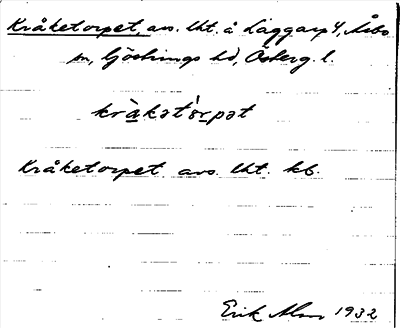 Kråketorpet, avs. lht. å Laggarp 4, Åsbo
sn, Göstrings hd, Österg. l.
kråkatòrpat
Kråketorpet avs. lht. kb.
Erik Alm 1932